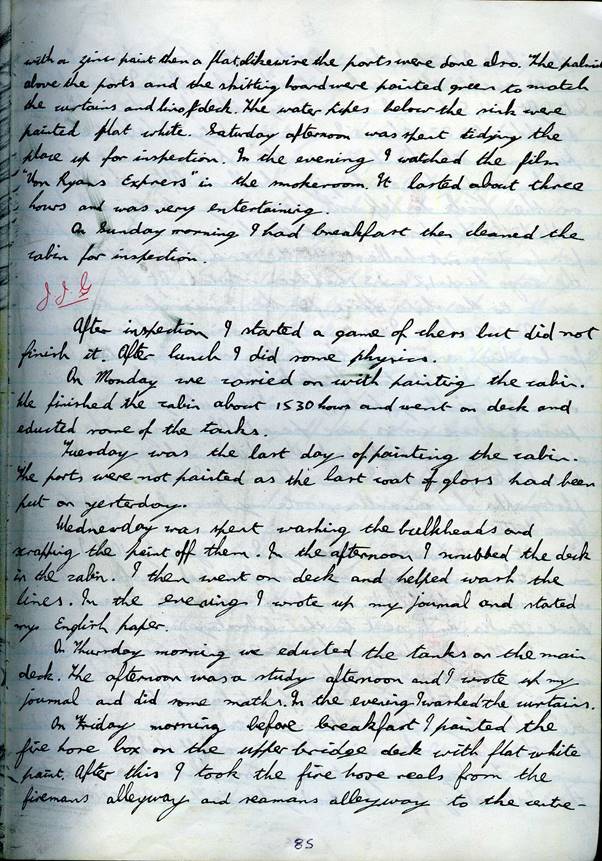 with a zinc paint then a flat, likewise the ports were done also. The
above the ports and the shifting board were painted green to match
the curtains and line of deck. The water pipes below the sink were
painted flat white. Saturday afternoon was spent tidying the
place up for inspection. In the evening I watched the film
"Von Ryans Express" in the smokeroom. It lasted about three
hours and was very entertaining.
On Sunday morning I had breakfast then cleaned the
cabin for inspection.
J J G
After inspection I started a game of chess but did not
finish it. After lunch I did some physics.
On Monday we carried on with painting the cabin.
We finished the cabin about 1530 hours and went on deck and
educted some of the tanks.
Tuesday was the last day of painting the cabin.
The ports were not painted as the last coat of gloss had been
put on yesterday.
Wednesday was spent washing the bulkheads and
scrapping the paint off them. In the afternoon I scrubbed the deck
in the cabin. I then went on deck and helped wash the
lines. In the evening I wrote up my journal and stated
my English paper.
On Thursday morning we educted the tanks on the main
deck. The afternoon was a study afternoon and I wrote up my
journal and did some maths. In the evening I washed the curtains.
On Friday morning before breakfast I painted the
fire hose box on the upper bridge deck with flat white
paint. After this I took the fire hose reals from the
firemans alleyway and seamans alleyway to the centre-
85